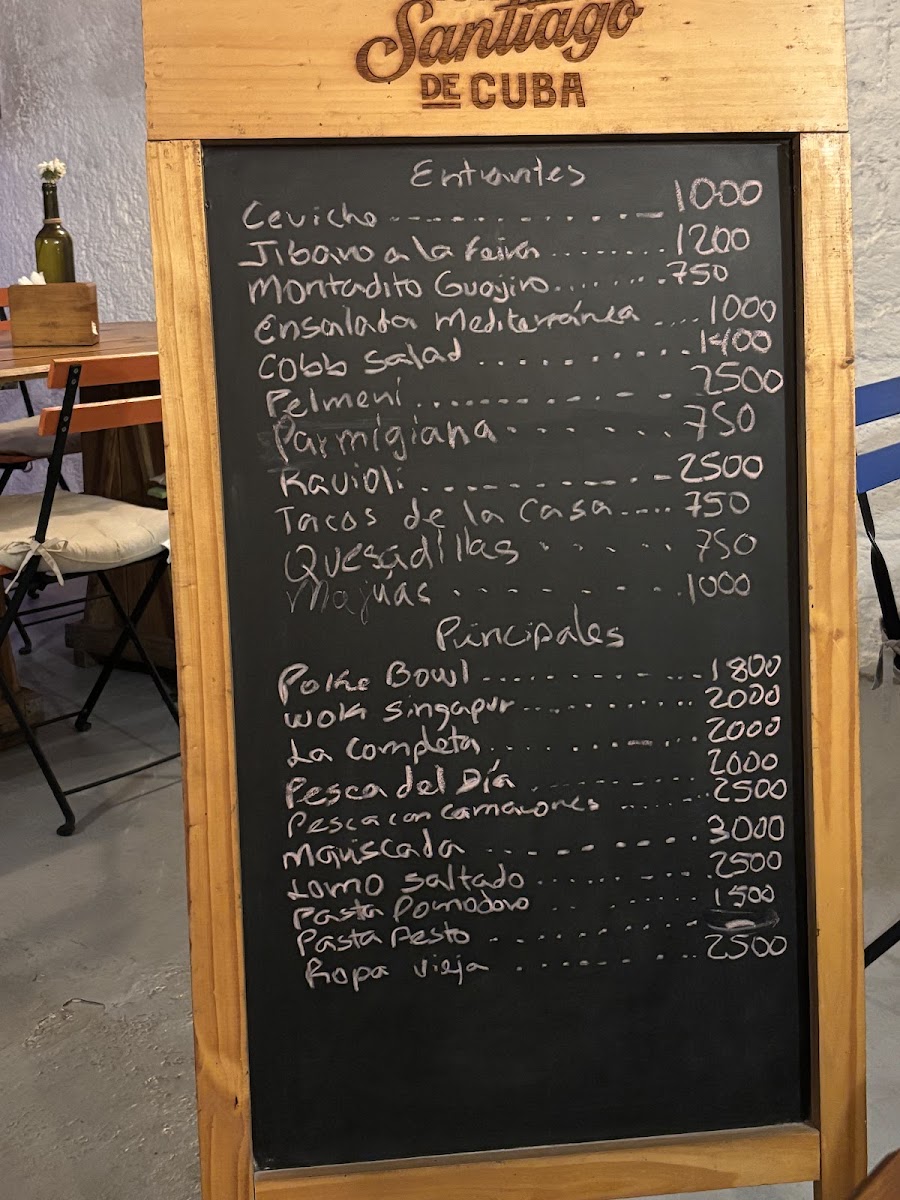 Santiago
DE CUBA
Entrantes
Ceviche ------------- 1000
Jibaro a la feira ........ 1200
Montadito Guajiro ........ 750
Ensalada Mediterránea .... 1000
Cobb Salad ............ 1400
Pelmení ............ 2500
Parmigiana ........ 750
Ravioli ............ 2500
Tacos de la Casa .... 750
Quesadillas ..... 750
Majúas ......... 1000
Principales
Poke Bowl ............ 1800
Wok Singapur ............ 2000
La Completa ............ 2000
Pesca del Día ............ 2000
Pesca con camarones ........ 2500
Mariscada ............ 3000
Lomo Saltado ............ 2500
Pasta Pomodoro ........ 1500
Pasta Pesto ............
Ropa vieja ............ 2500